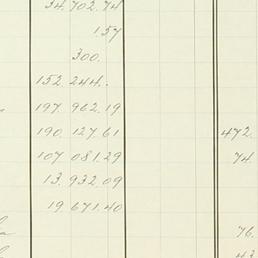 34.702.74
157
300.
152.244.
197.962.19
190.127.61 472.
107.081.29 74
13.932.09
19.671.40
76.
43